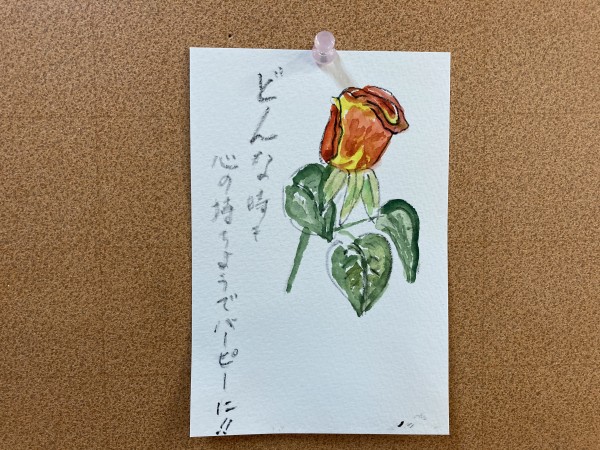 どんな時も
心の持ちようでハーピーに!!